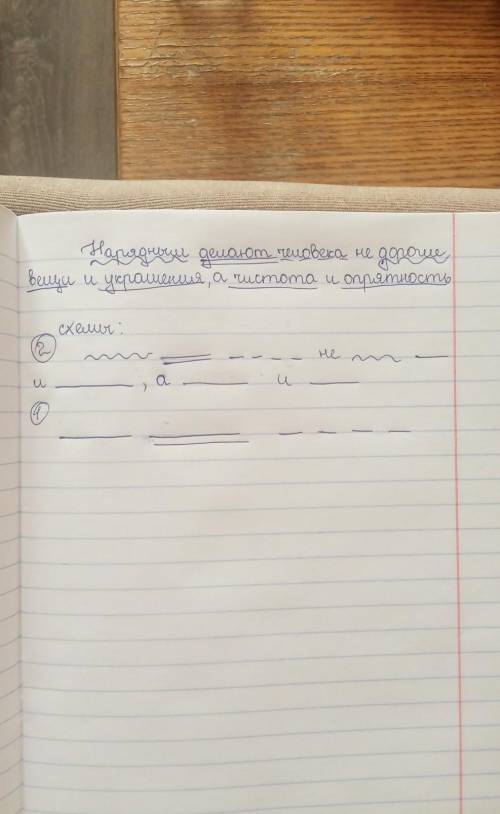 Нарядным делают человека не дорогие
вещи и украшения, а чистота и опрятность
схемы:
2 не
и , а и
1